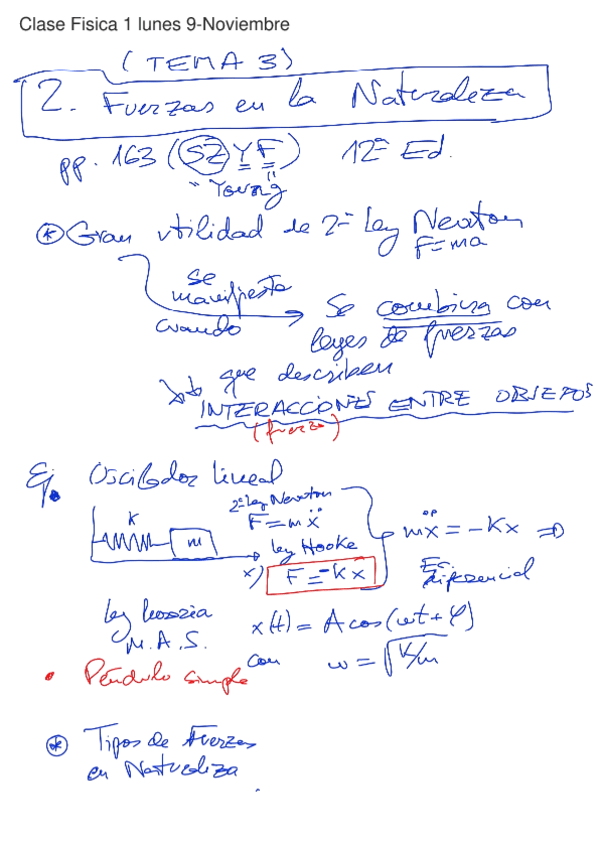 Clase Fisica 1 lunes 9-Noviembre
(TEMA 3)
2. Fuerzas en la Naturaleza
pp. 163 (SZ Y F) 12ª Ed.
"Young"
* Gran utilidad de 2ª ley Newton
F=ma
se
manifiesta
cuando
Se combina con
leyes de fuerzas
que describen
INTERACCIONES ENTRE OBJETOS
(fuerza)
Ej. Oscilador lineal
2ª ley Newton
K
F=mẍ
m
ley Hooke
x)
F=-Kx
mẍ=-Kx ⇒
Ec.
diferencial
ley
M.A.S.
x(t)= A cos(ωt+φ)
con ω=√K/m
• Péndulo simple
* Tipos de Fuerzas
en Naturaleza